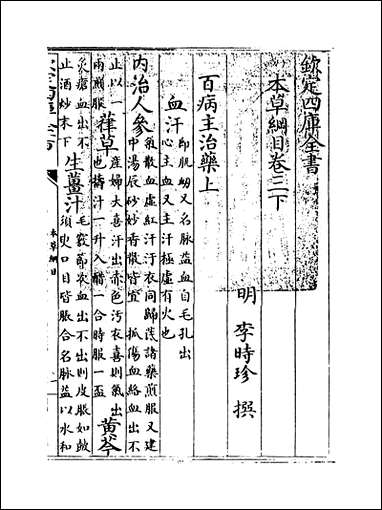 欽定四庫全書
本草綱目卷三下
明 李時珍 撰
百病主治藥上
血汗
即肌衂又名脉益血自毛孔出
心主血又主汗極虛有火也
内治人參
氣散血虛紅汗汙衣同歸諸藥煎服又建
中湯辰砂妙香散皆宜 抓傷血絡血出不
止以一
兩煎服
葎草
産婦大喜汗出赤色汚衣喜則氣出
也擣汁一升入醋一合時服一盃
黄芩
灸瘡血出不
止酒炒末下
生薑汁
毛竅節次血出不出則皮脹如皷
須臾口目皆脹合名脉益以水和
本草綱目